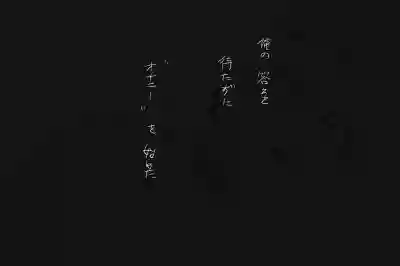 俺の答を
待たずに
"オナニー"を始めた